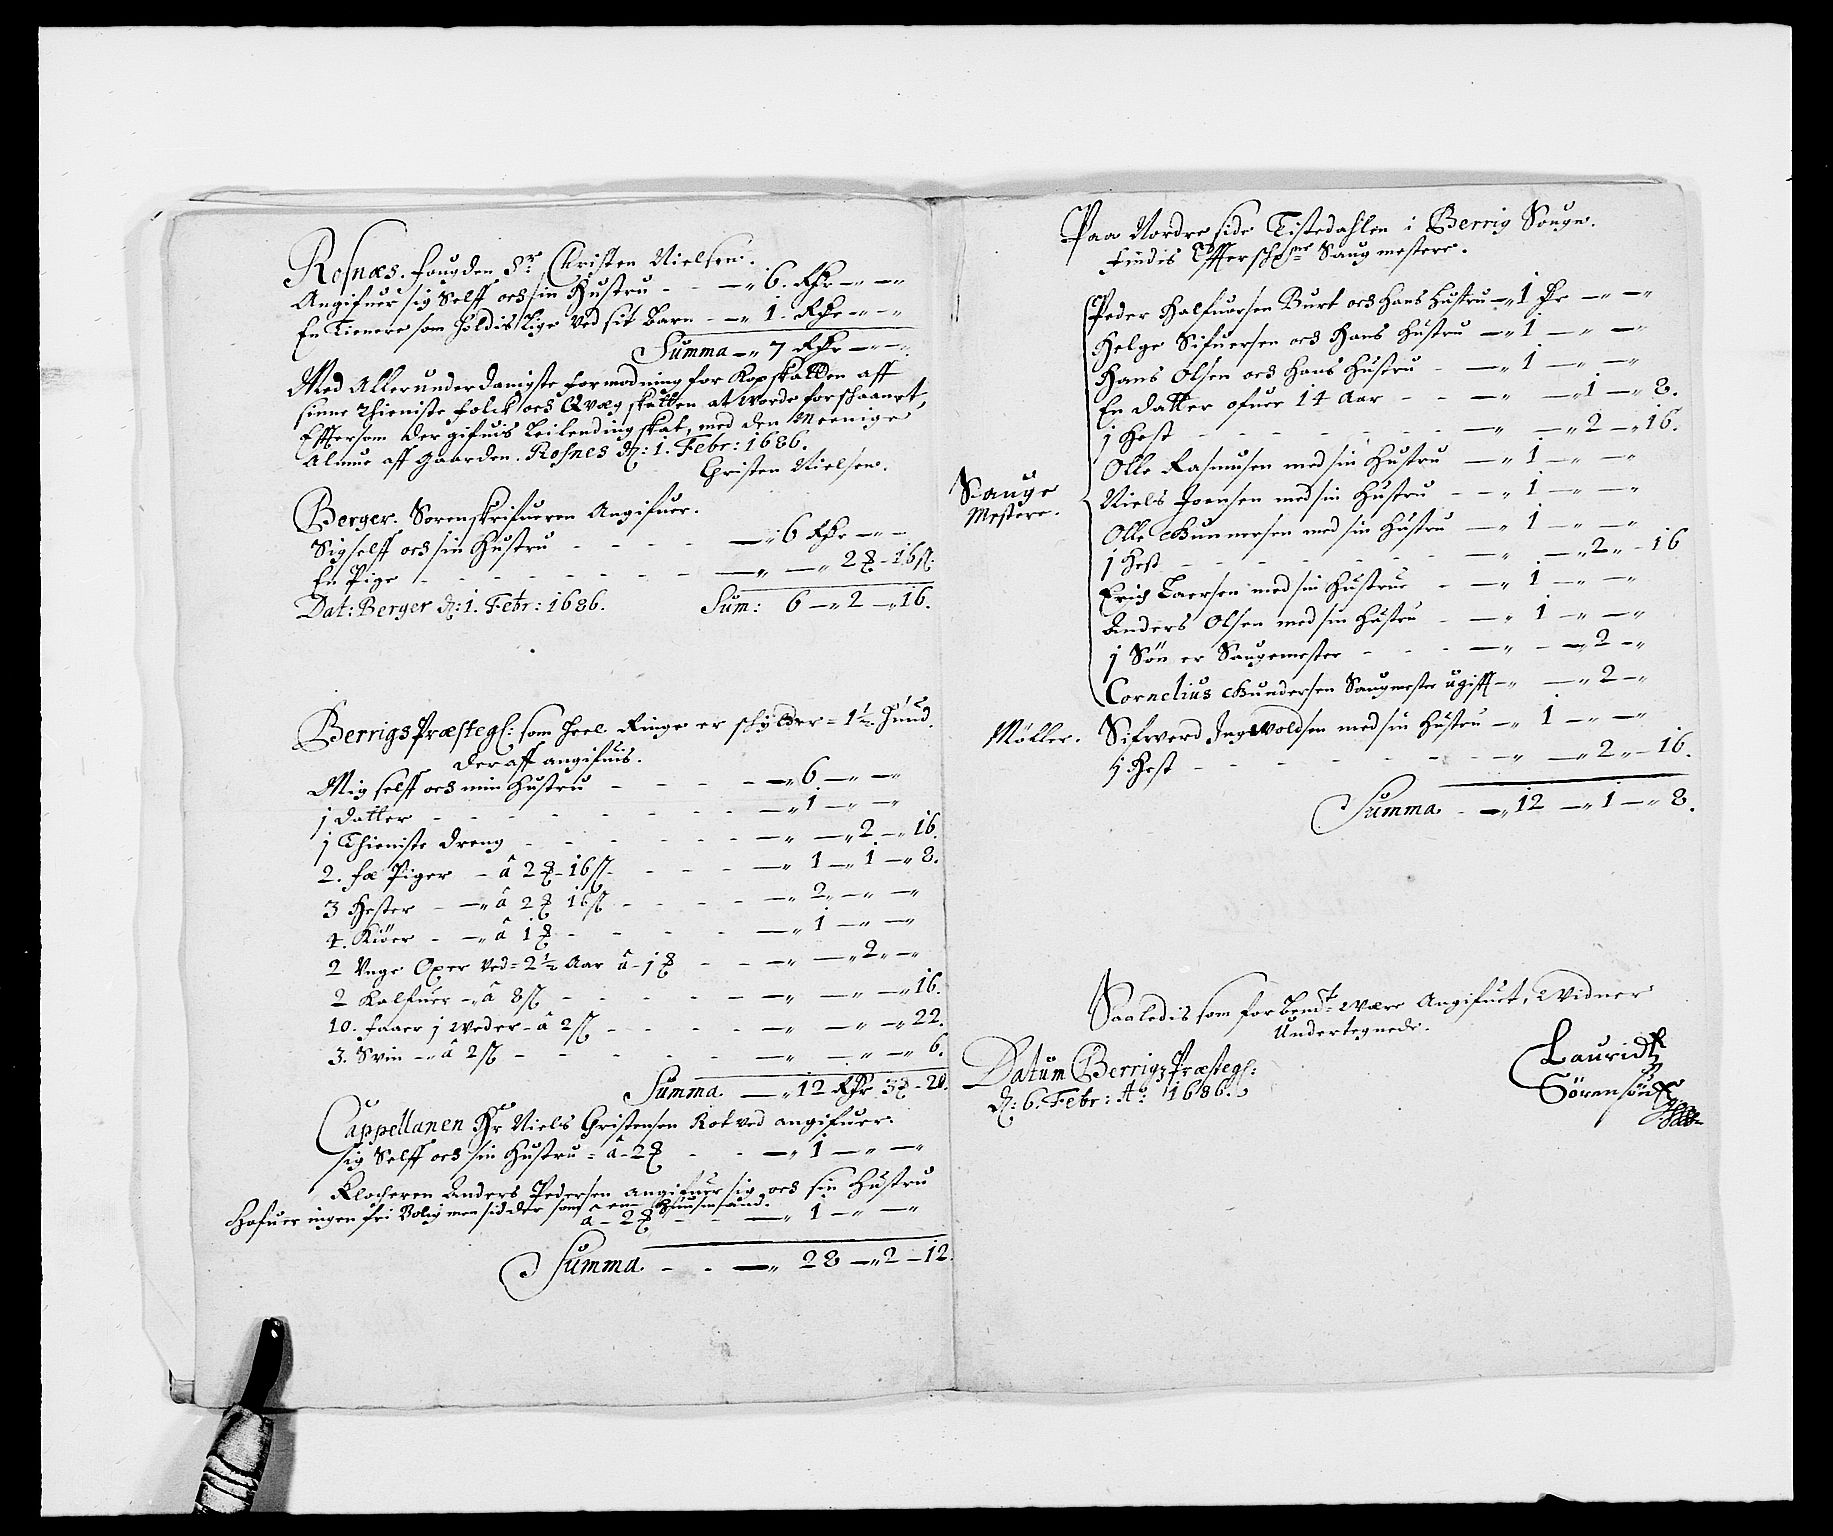 Rosnæs. fougden Sr Christen Nielsen.
Angifuer sig Selff och sin Hustru - - —„ 6. Rdr —„—„
En Tienere som holdis lige ved sit barn - —„ 1. Rdr —„—„
Summa —„ 7 Rdr —„—„
Med Allerunderdanigste formodning for Kopskatten aff
sinne thieniste folck och Qvæg skatten at worde forschaanet,
Effter som der gifuis leilending skat, med den Meenige
Almue aff gaarden. Rosnes d: 1. Febr: 1686.
Christen Nielsen.
Berger. Sorenskrifueren Angifuer.
Sig selff och sin Hustru - - - - —„ 6 Rdr —„—
En Pige - - - - - - - —„ —„ 2 ℥ - 16 ß.
Dat: Berger d: 1. Febr: 1686. Sum: 6 —„ 2 —„ 16.
Berrigs Præstegl: som heel Ringe er schylder = 1½ Hund.
der aff angifuis.
Mig selff och min Hustru - - - - —„ 6 —„—„
1 datter - - - - - - - —„ 1 —„—„
1 Thieniste dreng - - - - - - —„ —„ 2 —„ 16.
2. fæ Piger - â 2 ℥ - 16 ß - - - - —„ 1 —„ 1 —„ 8.
3 Hester - —„ â 2 ℥ 16 ß - - - - —„ 2 —„—„
4. Kiöer - —„ â 1 ℥ - - - - - —„ 1 —„—„
2 Unge Oxer ved = 2½ Aar â - 1 ℥ - - —„ —„ 2 —„
2 Kalfuer —„ â 8 ß - - - - - —„ —„ —„ 16.
10. faaer 1 weder - â 2 ß - - - - —„ —„ —„ 22.
3. Svin —„ â 2 ß - - - - - - —„ —„ —„ 6.
Summa —„ 12 Rdr 3 ℥ - 20.
Cappellanen Hr Niels Christensen Rot ved angifuer.
sig Selff och sin Hustru = â - 2 ℥ - - —„ 1 —„—„
Klocheren Anders Pedersen angifuer sig och sin Hustru
Hafuer ingen fri Bolig men sidder som en Huusmand.
â - 2 ℥ - - —„ 1 —„—„
Summa - - —„ 28 —„ 2 — 12.
Paa Nordre side Tistedahlen i Berrig Sougn.
findis Effterschne Saug mestere.
Peder Halfuorsen Burt och hans Hustru —„ 1 Rdr —„—„
Helge Sifuersen och hans Hustru —„ 1 —„—„
Hans Olsen och hans Hustru - —„ 1 —„—„
En datter ofuer 14 Aar - - —„ —„ 1 —„ 8.
1 Hest - - - - - - - —„ —„ 2 —„ 16.
Olle Rasmusen med sin Hustru —„ 1 —„—„
Sauge
Mestere.
Niels Joensen med sin Hustru - —„ 1 —„—„
Olle Gunnersen med sin Hustru —„ 1 —„—„
1 Hest - - - - - - - —„ —„ 2 —„ 16
Erich Laersen med sin Hustrue - —„ 1 —„—„
Anders Olsen med sin Hustru - —„ 1 —„—„
1 Sön er Saugemester - - - —„ —„ 2 —„
Cornelius Gundersen Saugmester ugifft —„ —„ 2 —„
Møller. Sifwerd Ingwoldsen med sin Hustru —„ 1 —„—„
1 Hest - - - - - - - —„ —„ 2 —„ 16.
Summa - —„ 12 —„ 1 —„ 8.
Saaledis som for bemt være Angifuet, Widner
Undertegnede.
Datum Berrigs Præstegl:
d: 6. Febr: Ao 1686.
Lauridtz
Sörensön